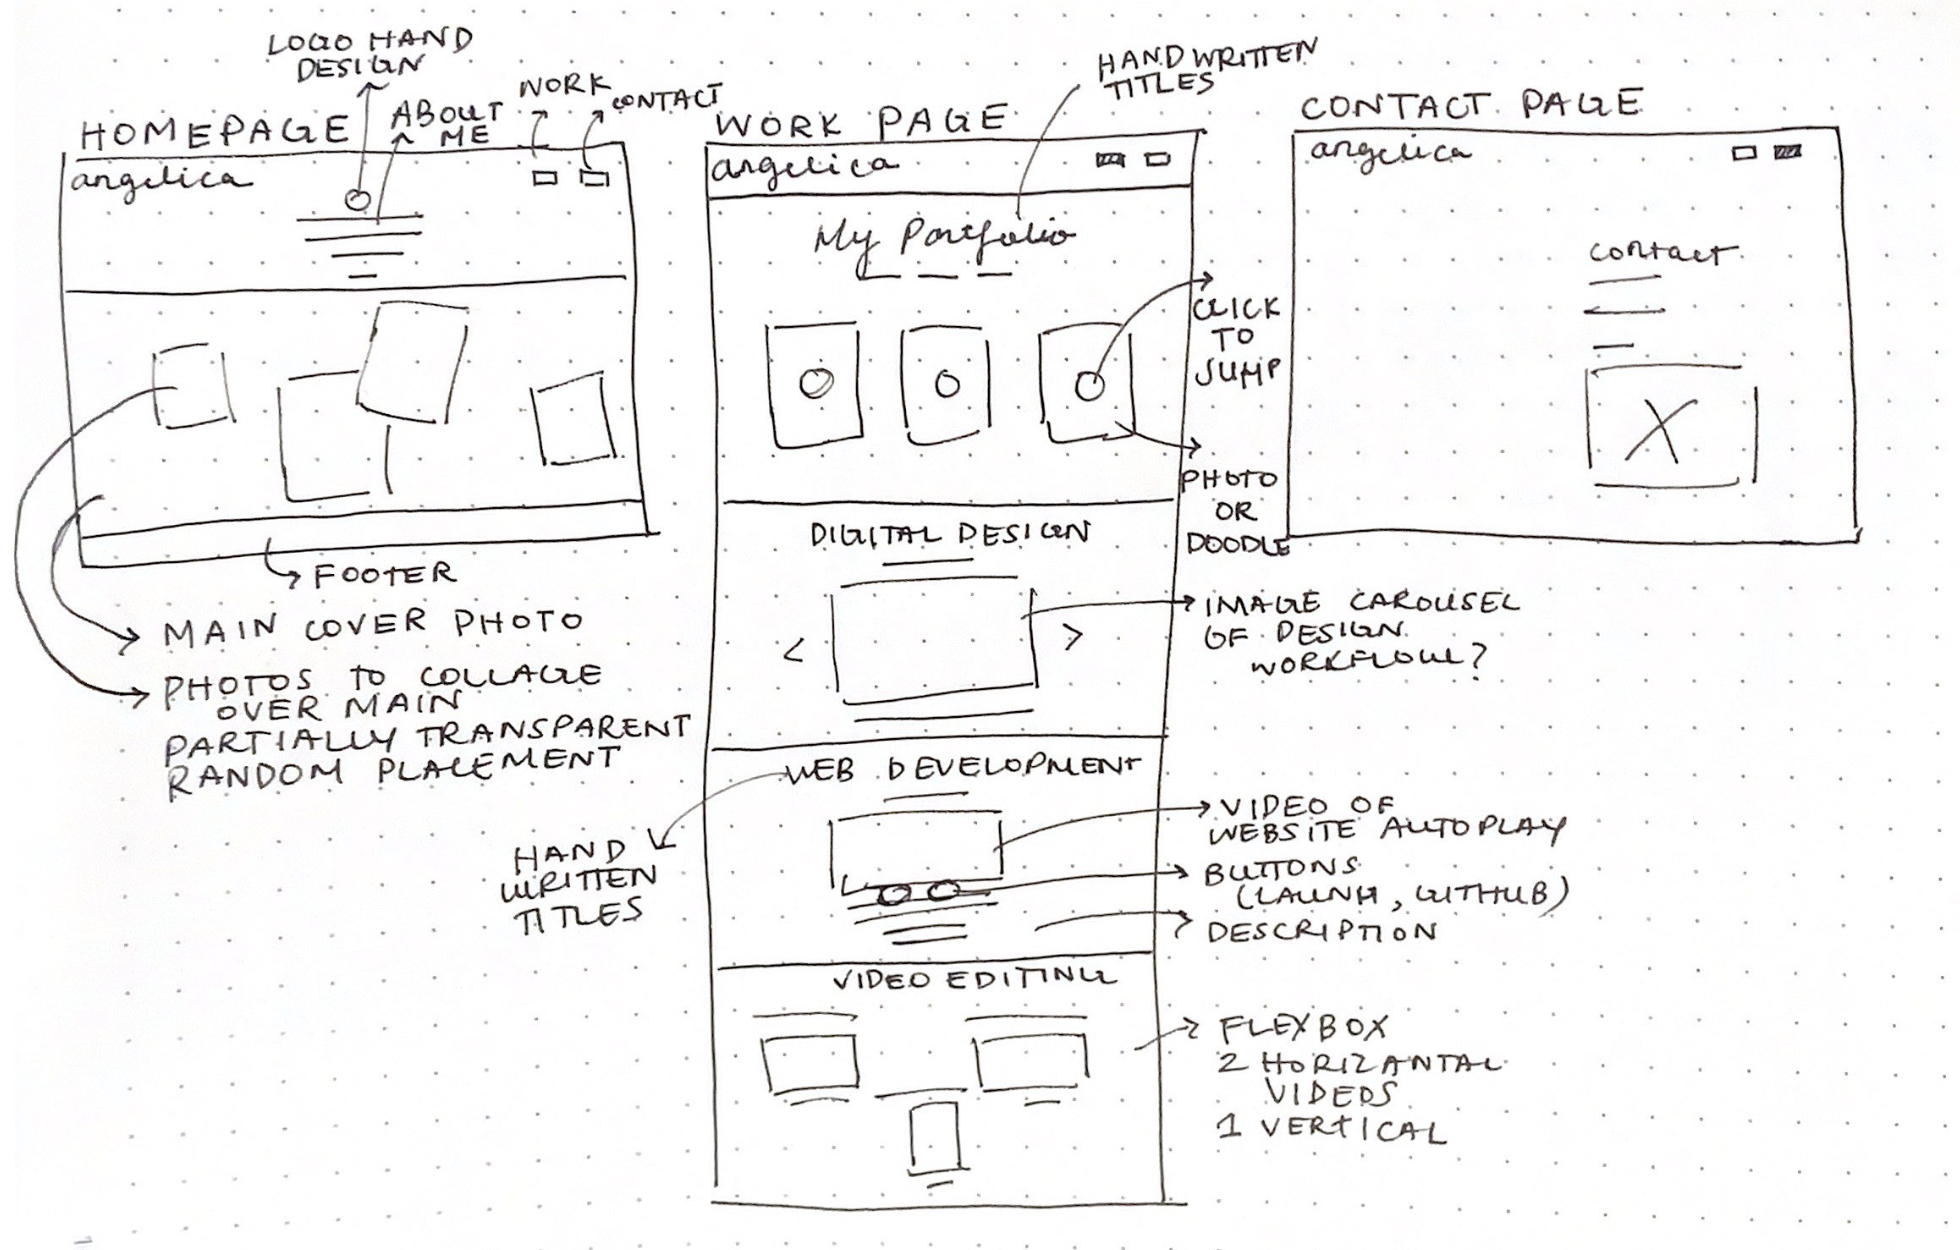 LOGO HAND
DESIGN
ABOUT
ME
WORK
CONTACT
HOMEPAGE
angelica
FOOTER
MAIN COVER PHOTO
PHOTOS TO COLLAGE
OVER MAIN
PARTIALLY TRANSPARENT
RANDOM PLACEMENT
HANDWRITTEN
TITLES
WORK PAGE
angelica
My Portfolio
CLICK
TO
JUMP
PHOTO
OR
DOODLE
DIGITAL DESIGN
< >
IMAGE CAROUSEL
OF DESIGN
WORKFLOW?
WEB DEVELOPMENT
HAND
WRITTEN
TITLES
VIDEO OF
WEBSITE AUTOPLAY
BUTTONS
(LAUNH, GITHUB)
DESCRIPTION
VIDEO EDITING
FLEXBOX
2 HORIZANTAL
VIDEOS
1 VERTICAL
CONTACT PAGE
angelica
contact